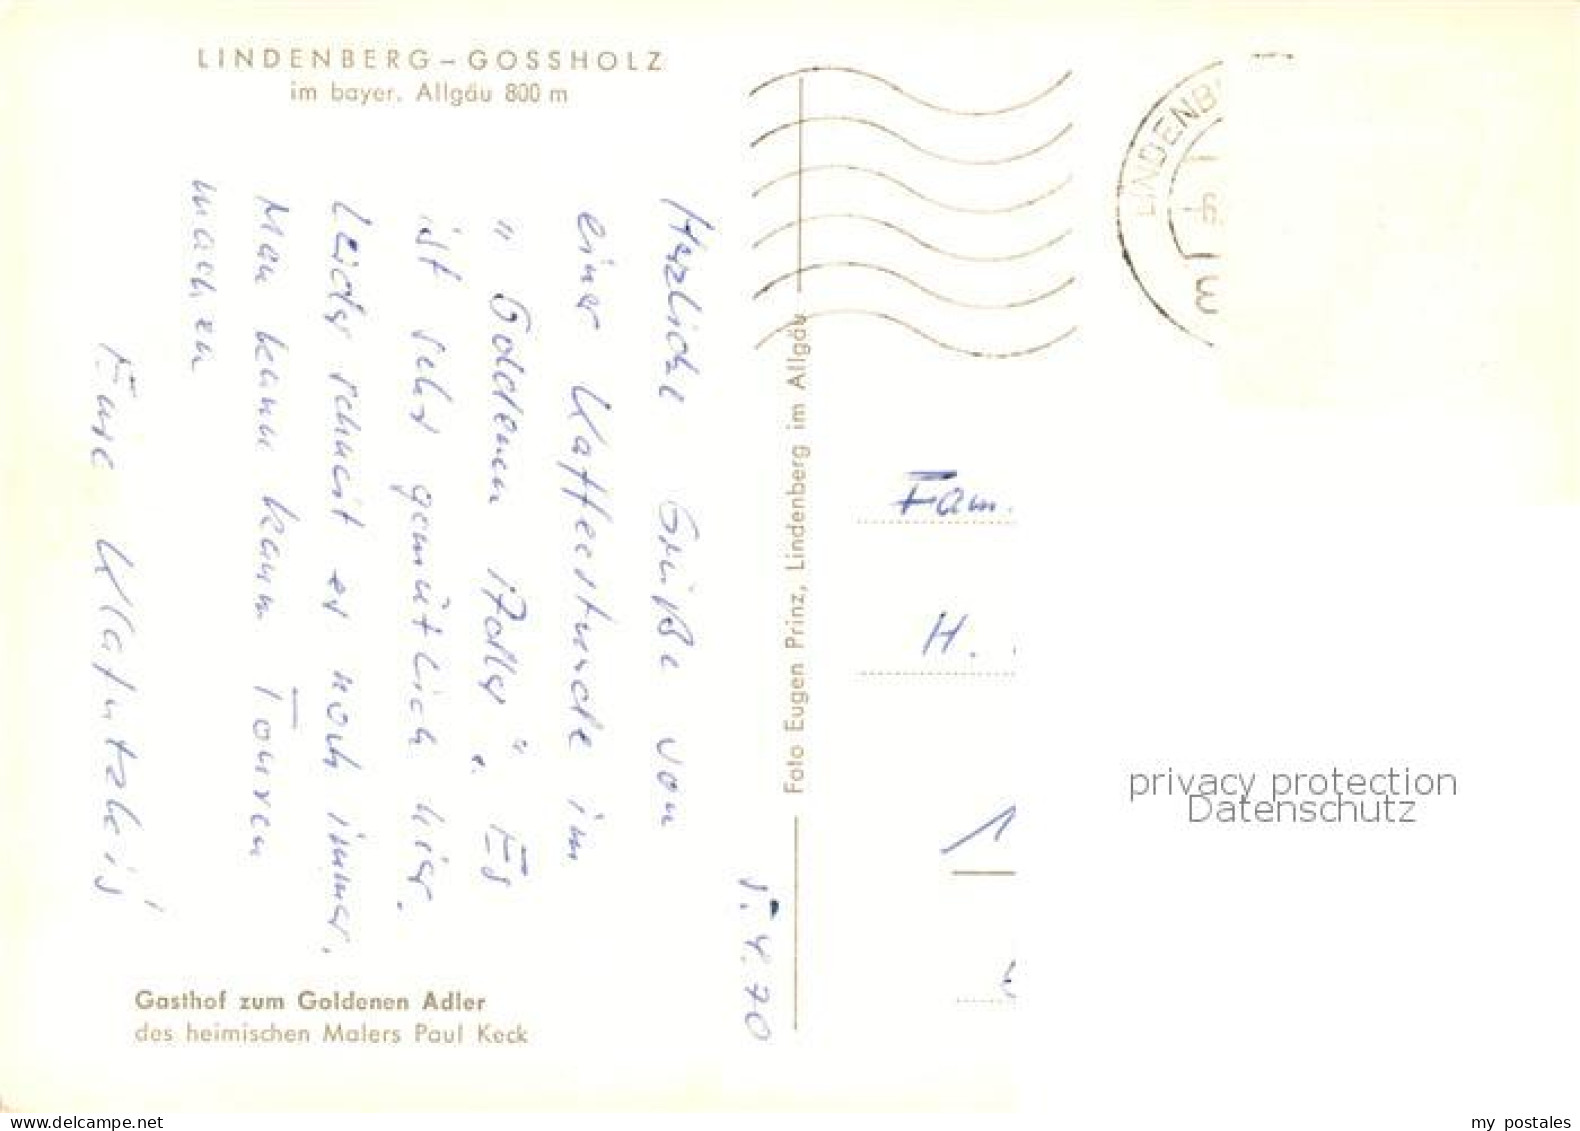 LINDENBERG – GOSSHOLZ
im bayer. Allgäu 800 m
5.4.70
Herzliche Grüße von
einer Kaffeestunde im
"Goldenen Adler". Es
ist sehr gemütlich hier.
Leider schneit es noch immer.
Man kann kaum Touren
machen
Eure
Gasthof zum Goldenen Adler
des heimischen Malers Paul Keck
Foto Eugen Prinz, Lindenberg im Allgäu
LINDENB
Fam.
H.
1
privacy protection
Datenschutz
www.delcampe.net
my postales